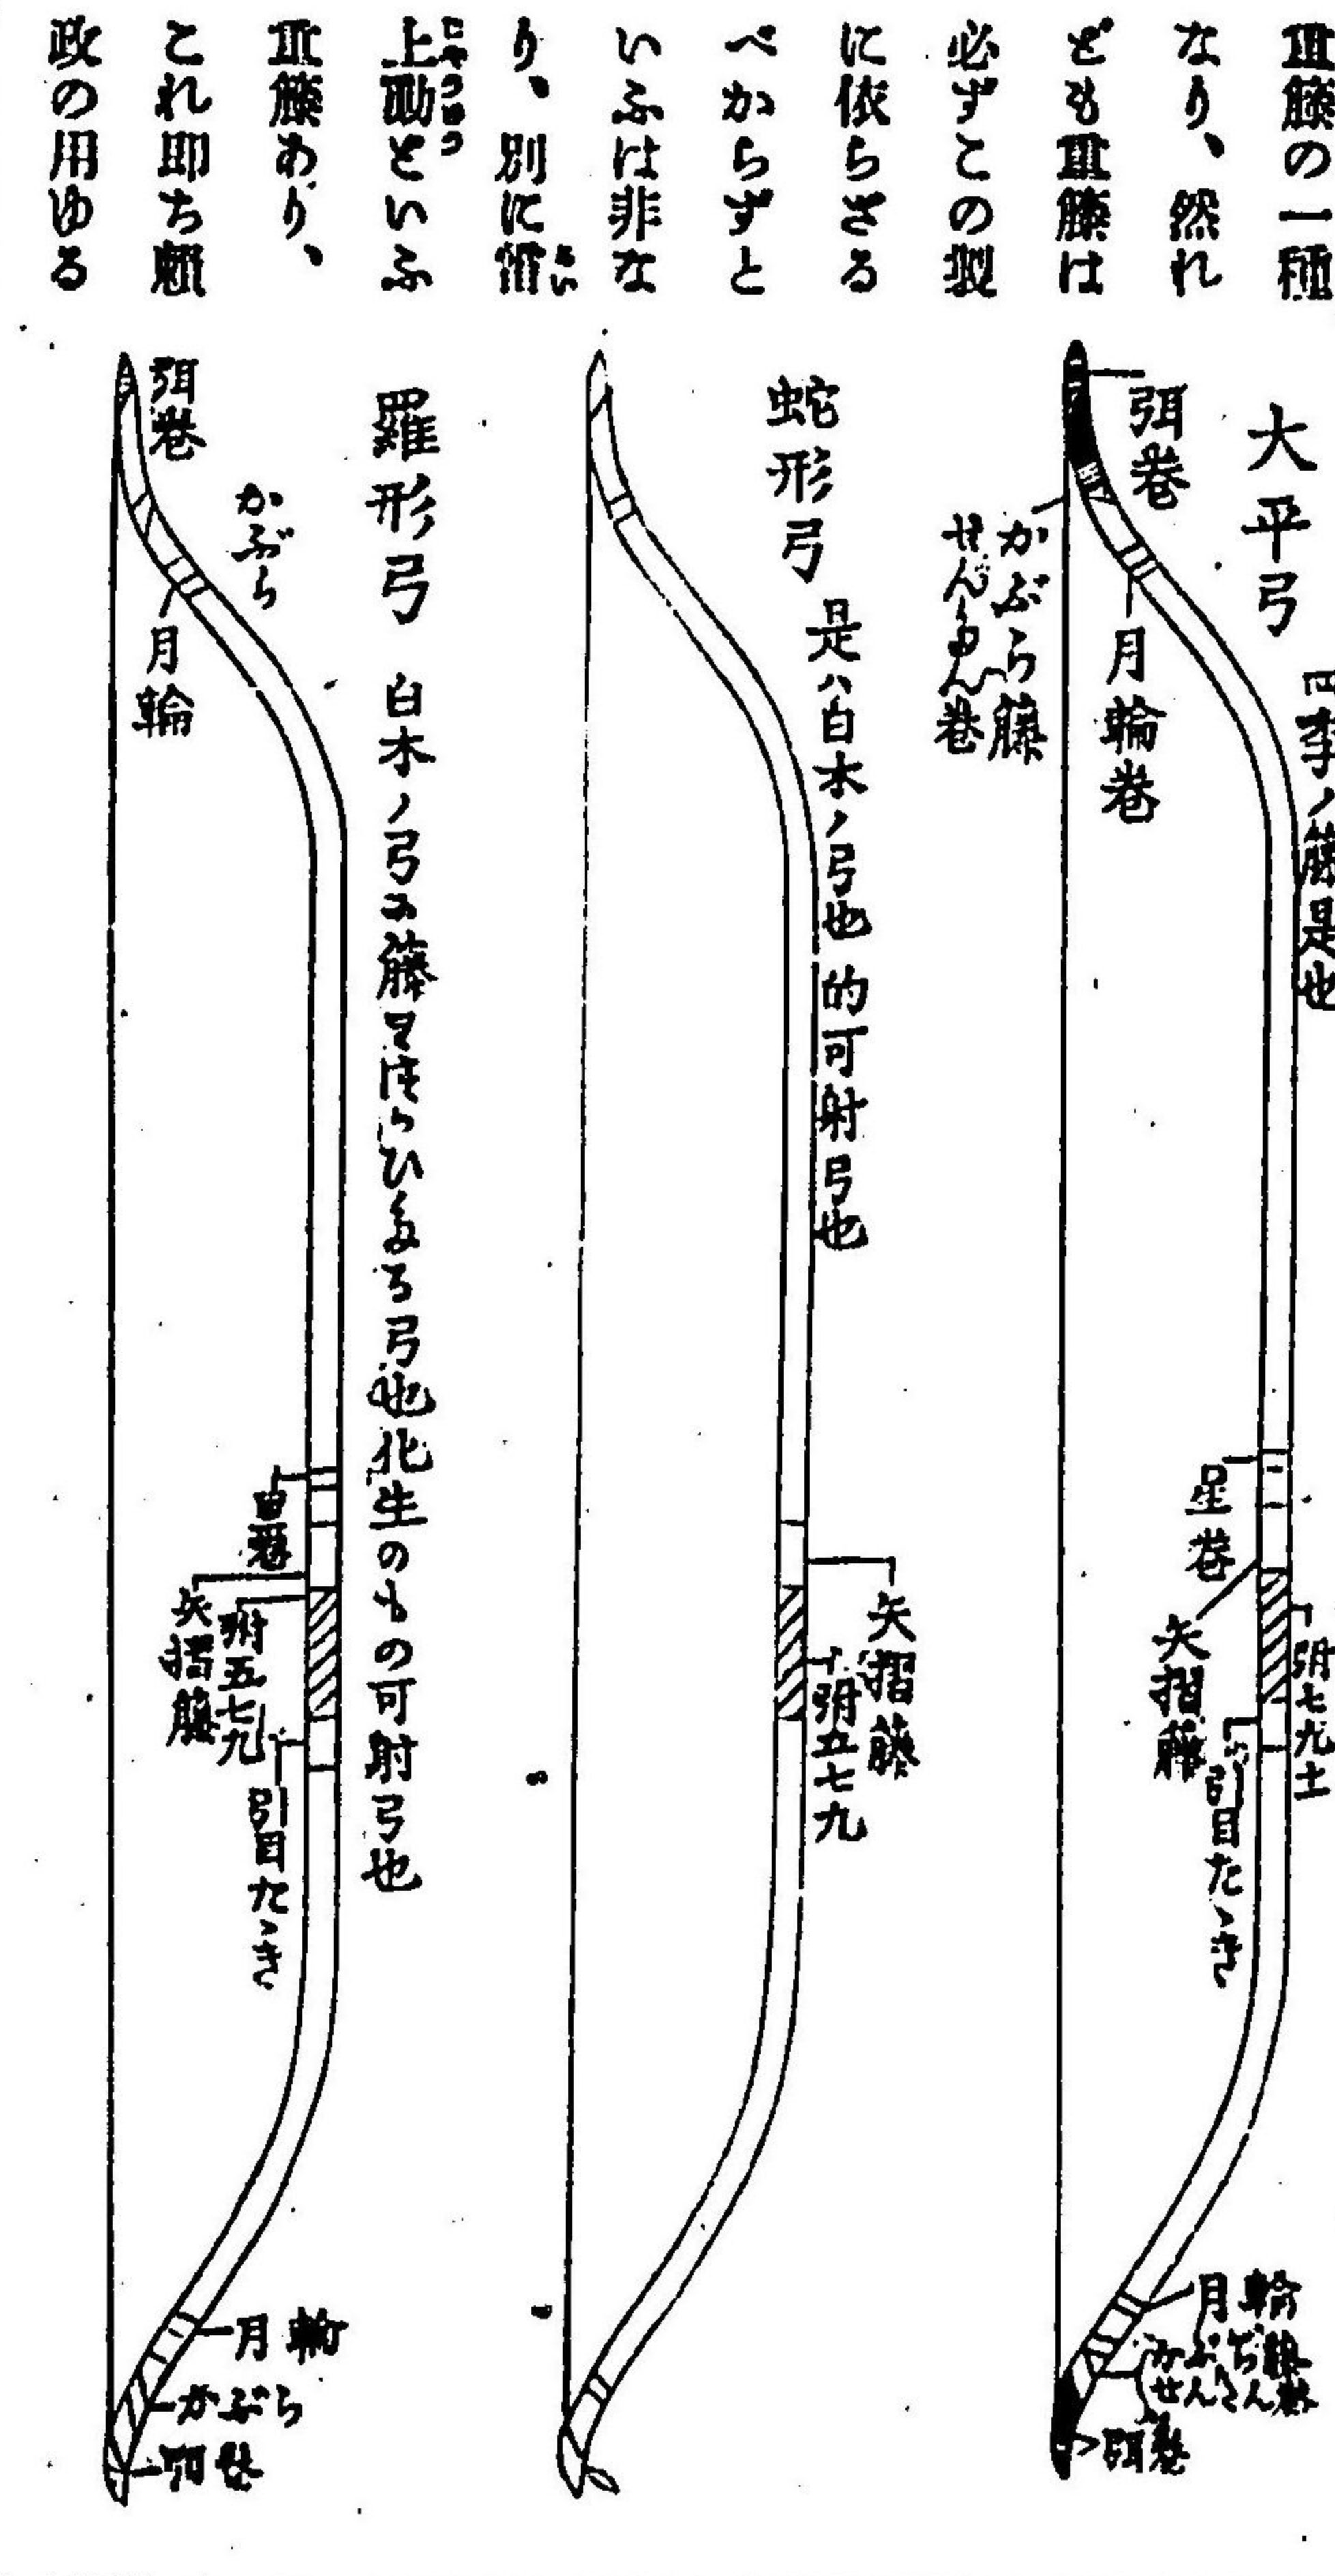 重籐の一種
なり、然れ
ども重籐は
必ずこの製
に依らざる
べからずと
いふは非な
り、別に雷
上動といふ
重籐あり、
これ即ち頼
政の用ゆる
大平弓
四季ノ藤是也
弭巻
月輪巻
かぶら藤
せんだん巻
星巻
矢摺藤
弣七九十
引目たゝき
月輪
かぶら藤
せんだん巻
弭巻
蛇形弓
是ハ白木ノ弓也 的可射弓也
矢摺藤
弣五七九
羅形弓
白木ノ弓ニ藤
弓也化生のもの可射弓也
弭巻
かぶら
月輪
矢摺籐
弣五七九
引目たゝき
月輪
かぶら
弭巻